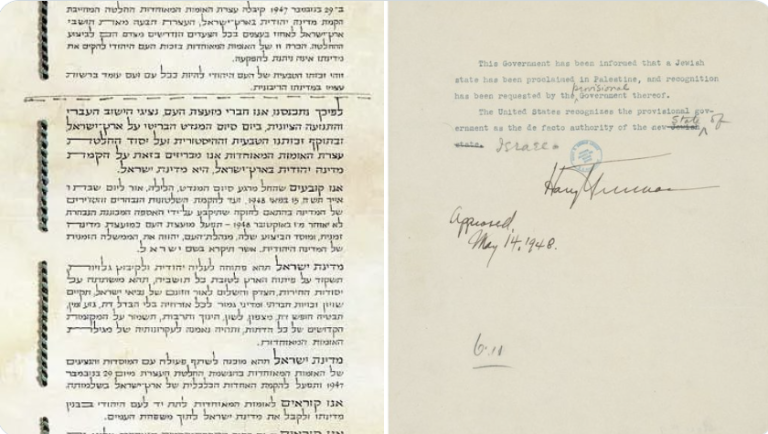 ב־29 בנובמבר 1947 קיבלה עצרת האומות המאוחדות החלטה המחייבת
הקמת מדינה יהודית בארץ־ישראל, העצרת תבעה מאת תושבי
ארץ־ישראל לאחוז בעצמם בכל הצעדים הנדרשים מצדם הם לביצוע
ההחלטה. הכרה זו של האומות המאוחדות בזכות העם היהודי להקים את
מדינתו אינה ניתנת להפקעה.
זוהי זכותו הטבעית של העם היהודי להיות ככל עם ועם עומד ברשות
עצמו במדינתו הריבונית.
לפיכך נתכנסנו, אנו חברי מועצת העם, נציגי הישוב העברי
והתנועה הציונית, ביום סיום המנדט הבריטי על ארץ־ישראל
ובתוקף זכותנו הטבעית וההיסטורית ועל יסוד החלטת
עצרת האומות המאוחדות אנו מכריזים בזאת על הקמת
מדינה יהודית בארץ ישראל, היא מדינת ישראל.
אנו קובעים שהחל מרגע סיום המנדט, הלילה, אור ליום שבת ו
אייר תש״ח, 15 במאי 1948, ועד להקמת השלטונות הנבחרים והסדירים
של המדינה בהתאם לחוקה שתיקבע על־ידי האספה המכוננת הנבחרת
לא יאוחר מ־1 באוקטובר 1948 - תפעל מועצת העם כמועצת מדינה
זמנית, ומוסד הביצוע שלה, מנהלת־העם, יהווה את הממשלה הזמנית
של המדינה היהודית, אשר תיקרא בשם ישראל.
מדינת ישראל תהא פתוחה לעליה יהודית ולקיבוץ גלויות,
תשקוד על פיתוח הארץ לטובת כל תושביה, תהא מושתתה על
יסודות החירות, הצדק והשלום לאור חזונם של נביאי ישראל, תקיים
שויון זכויות חברתי ומדיני גמור לכל אזרחיה בלי הבדל דת, גזע ומין,
תבטיח חופש דת, מצפון, לשון, חינוך ותרבות, תשמור על המקומות
הקדושים של כל הדתות, ותהיה נאמנה לעקרונותיה של מגילת
האומות המאוחדות.
מדינת ישראל תהא מוכנה לשתף פעולה עם המוסדות והנציגים
של האומות המאוחדות בהגשמת החלטת העצרת מיום 29 בנובמבר
1947 ותפעל להקמת האחדות הכלכלית של ארץ־ישראל בשלמותה.
אנו קוראים לאומות המאוחדות לתת יד לעם היהודי בבנין
מדינתו ולקבל את מדינת ישראל לתוך משפחת העמים.
אנו קוראים
This Government has been informed that a Jewish
state has been proclaimed in Palestine, and recognition
provisional
has been requested by the Government thereof.
The United States recognizes the provisional gov-
ernment as the de facto authority of the new Jewish State of
state. Israel
Harry Truman
Approved,
May 14, 1948.